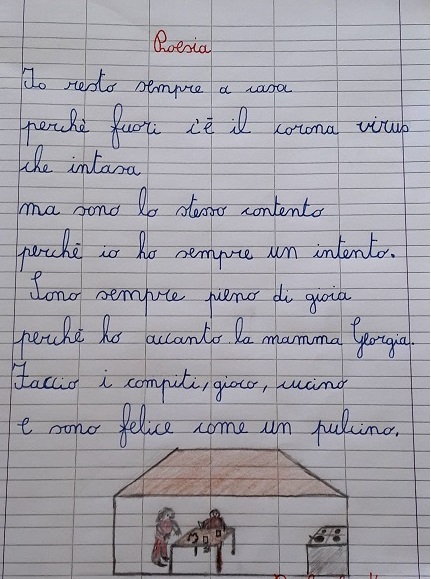 Poesia
Io resto sempre a casa
perchè fuori c'è il corona virus
che intasa
ma sono lo stesso contento
perchè io ho sempre un intento.
Sono sempre pieno di gioia
perchè ho accanto la mamma Georgia.
Faccio i compiti, gioco, cucino
e sono felice come un pulcino.